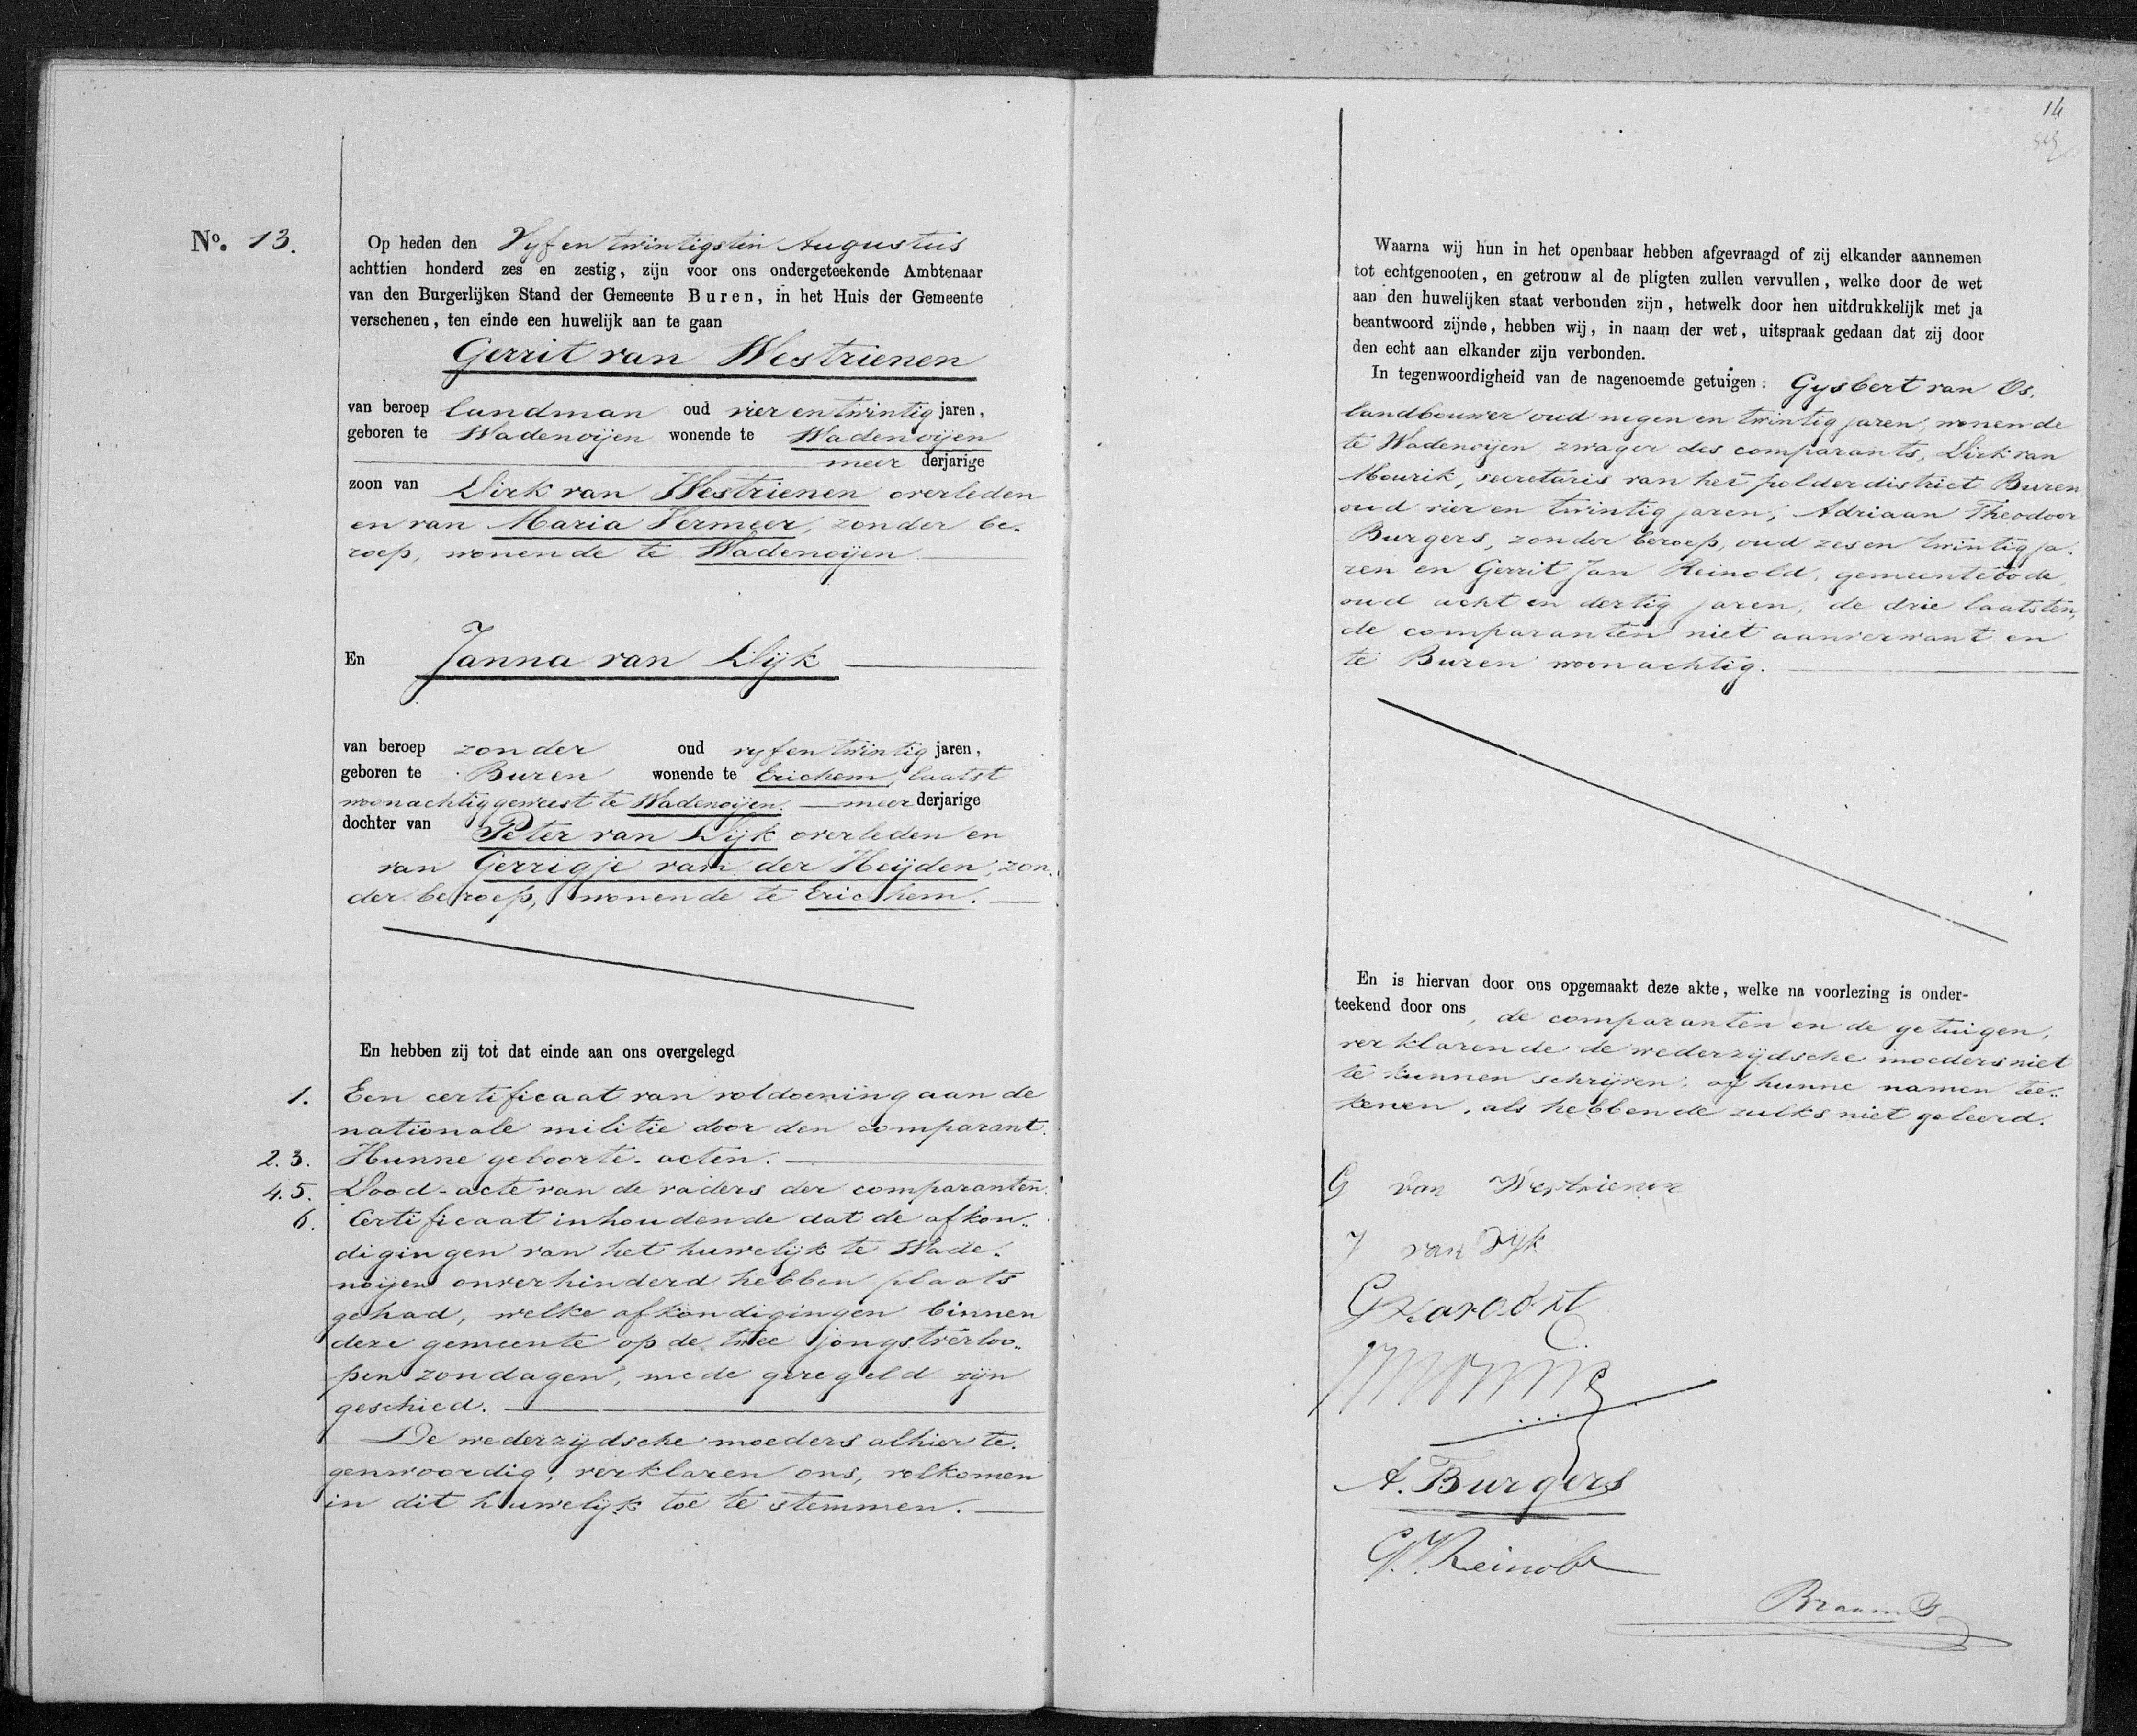 No. 13.
Op heden den Vyf en twintigsten Augustus
achttien honderd zes en zestig, zijn voor ons ondergeteekende Ambtenaar
van den Burgerlijken Stand der Gemeente Buren, in het Huis der Gemeente
verschenen, ten einde een huwelijk aan te gaan
Gerrit van Westrienen
van beroep landman oud vier en twintig jaren,
geboren te Wadenoijen wonende te Wadenoijen
meer derjarige
zoon van Dirk van Westrienen overleden
en van Maria Vermeer, zonder be-
roep, wonende te Wadenoijen
En Janna van Dijk
van beroep zonder oud vyf en twintig jaren,
geboren te Buren wonende te Erichem, laatst
woonachtig geweest te Wadenoijen. meer derjarige
dochter van Peter van Dijk overleden en
van Gerrigje van der Heijden, zon-
der beroep, wonende te Erichem.
En hebben zij tot dat einde aan ons overgelegd
1. Een certificaat van voldoening aan de
nationale militie door den comparant.
2. 3. Hunne geboorte-acten.
4. 5. Dood-acte van de vaders der comparanten.
6. Certificaat inhoudende dat de afkon-
digingen van het huwelijk te Wade-
noijen onverhinderd hebben plaats
gehad, welke afkondigingen binnen
deze gemeente op de twee jongstverloo-
pen zondagen, mede geregeld zijn
geschied.
De wederzijdsche moeders alhier te-
genwoordig, verklaren ons, volkomen
in dit huwelijk toe te stemmen.
14
Waarna wij hun in het openbaar hebben afgevraagd of zij elkander aannemen
tot echtgenooten, en getrouw al de pligten zullen vervullen, welke door de wet
aan den huwelijken staat verbonden zijn, hetwelk door hen uitdrukkelijk met ja
beantwoord zijnde, hebben wij, in naam der wet, uitspraak gedaan dat zij door
den echt aan elkander zijn verbonden.
In tegenwoordigheid van de nagenoemde getuigen: Gysbert van Os,
landbouwer oud negen en twintig jaren, wonende
te Wadenoijen zwager des comparants, Dirk van
Mourik, secretaris van het polderdistrict Buren
oud vier en twintig jaren, Adriaan Theodoor
Burgers, zonder beroep, oud zes en twintig ja-
ren en Gerrit Jan Reinold, gemeentebode,
oud acht en dertig jaren, de drie laatsten,
de comparanten niet aanverwant en
te Buren woonachtig.
En is hiervan door ons opgemaakt deze akte, welke na voorlezing is onder-
teekend door ons, de comparanten en de getuigen,
verklarende de wederzijdsche moeders niet
te kunnen schrijven of hunne namen tee-
kenen, als hebbende zulks niet geleerd.
G van Westrienen
J van Dijk
A. Burgers
G. J. Reinold